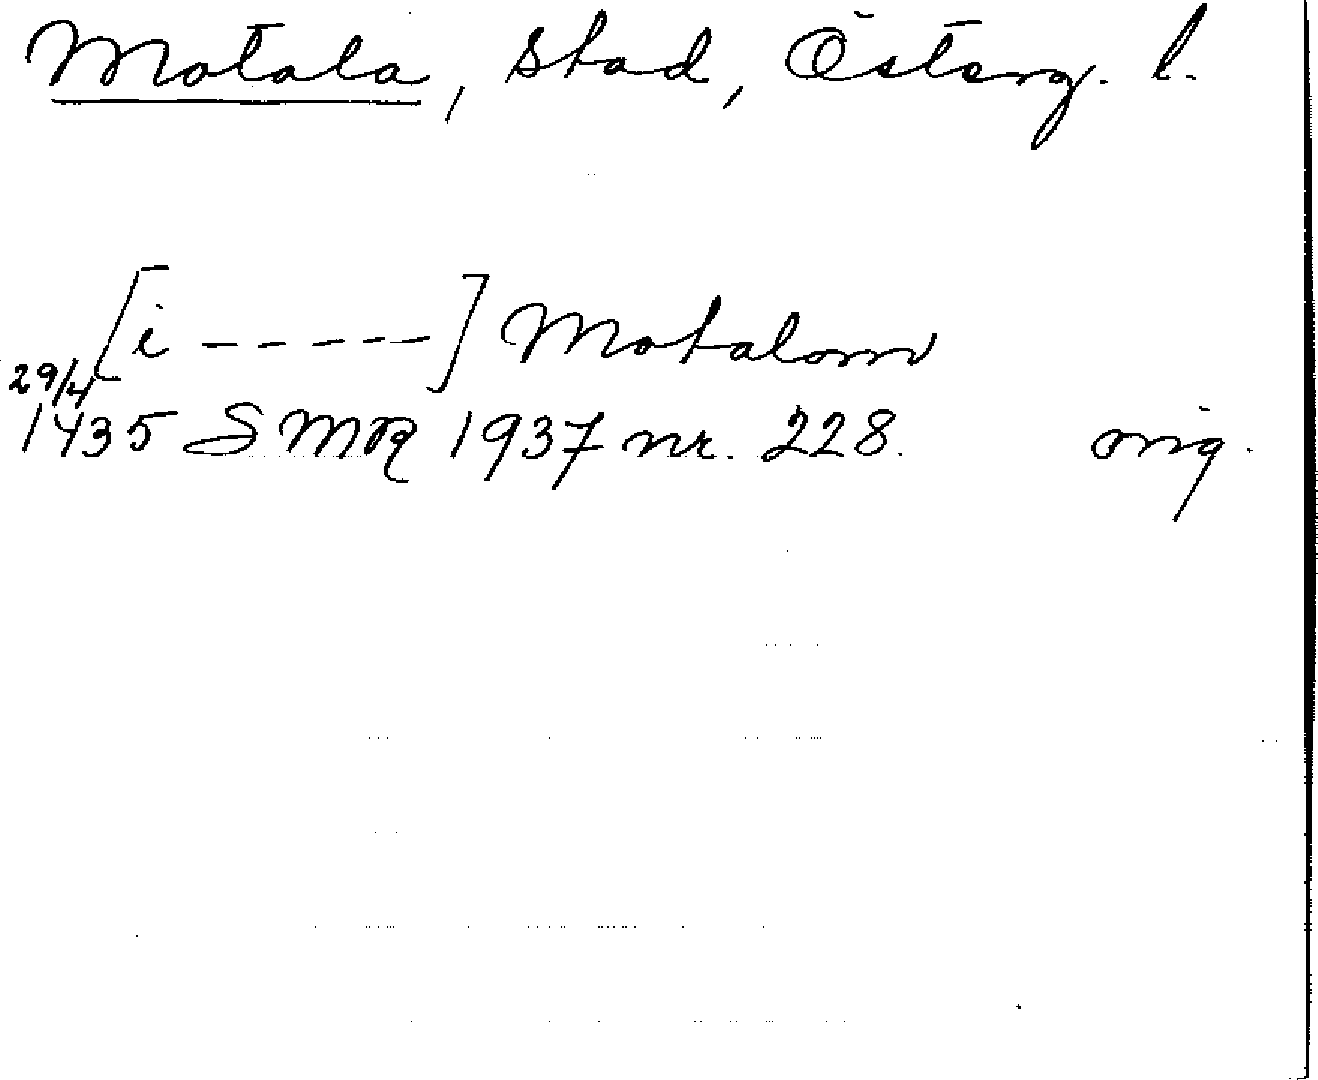 Motala, stad, Österg. l.
[i - - - - - -] Motalom
29/4
1435 SMR 1937 nr. 228. orig.